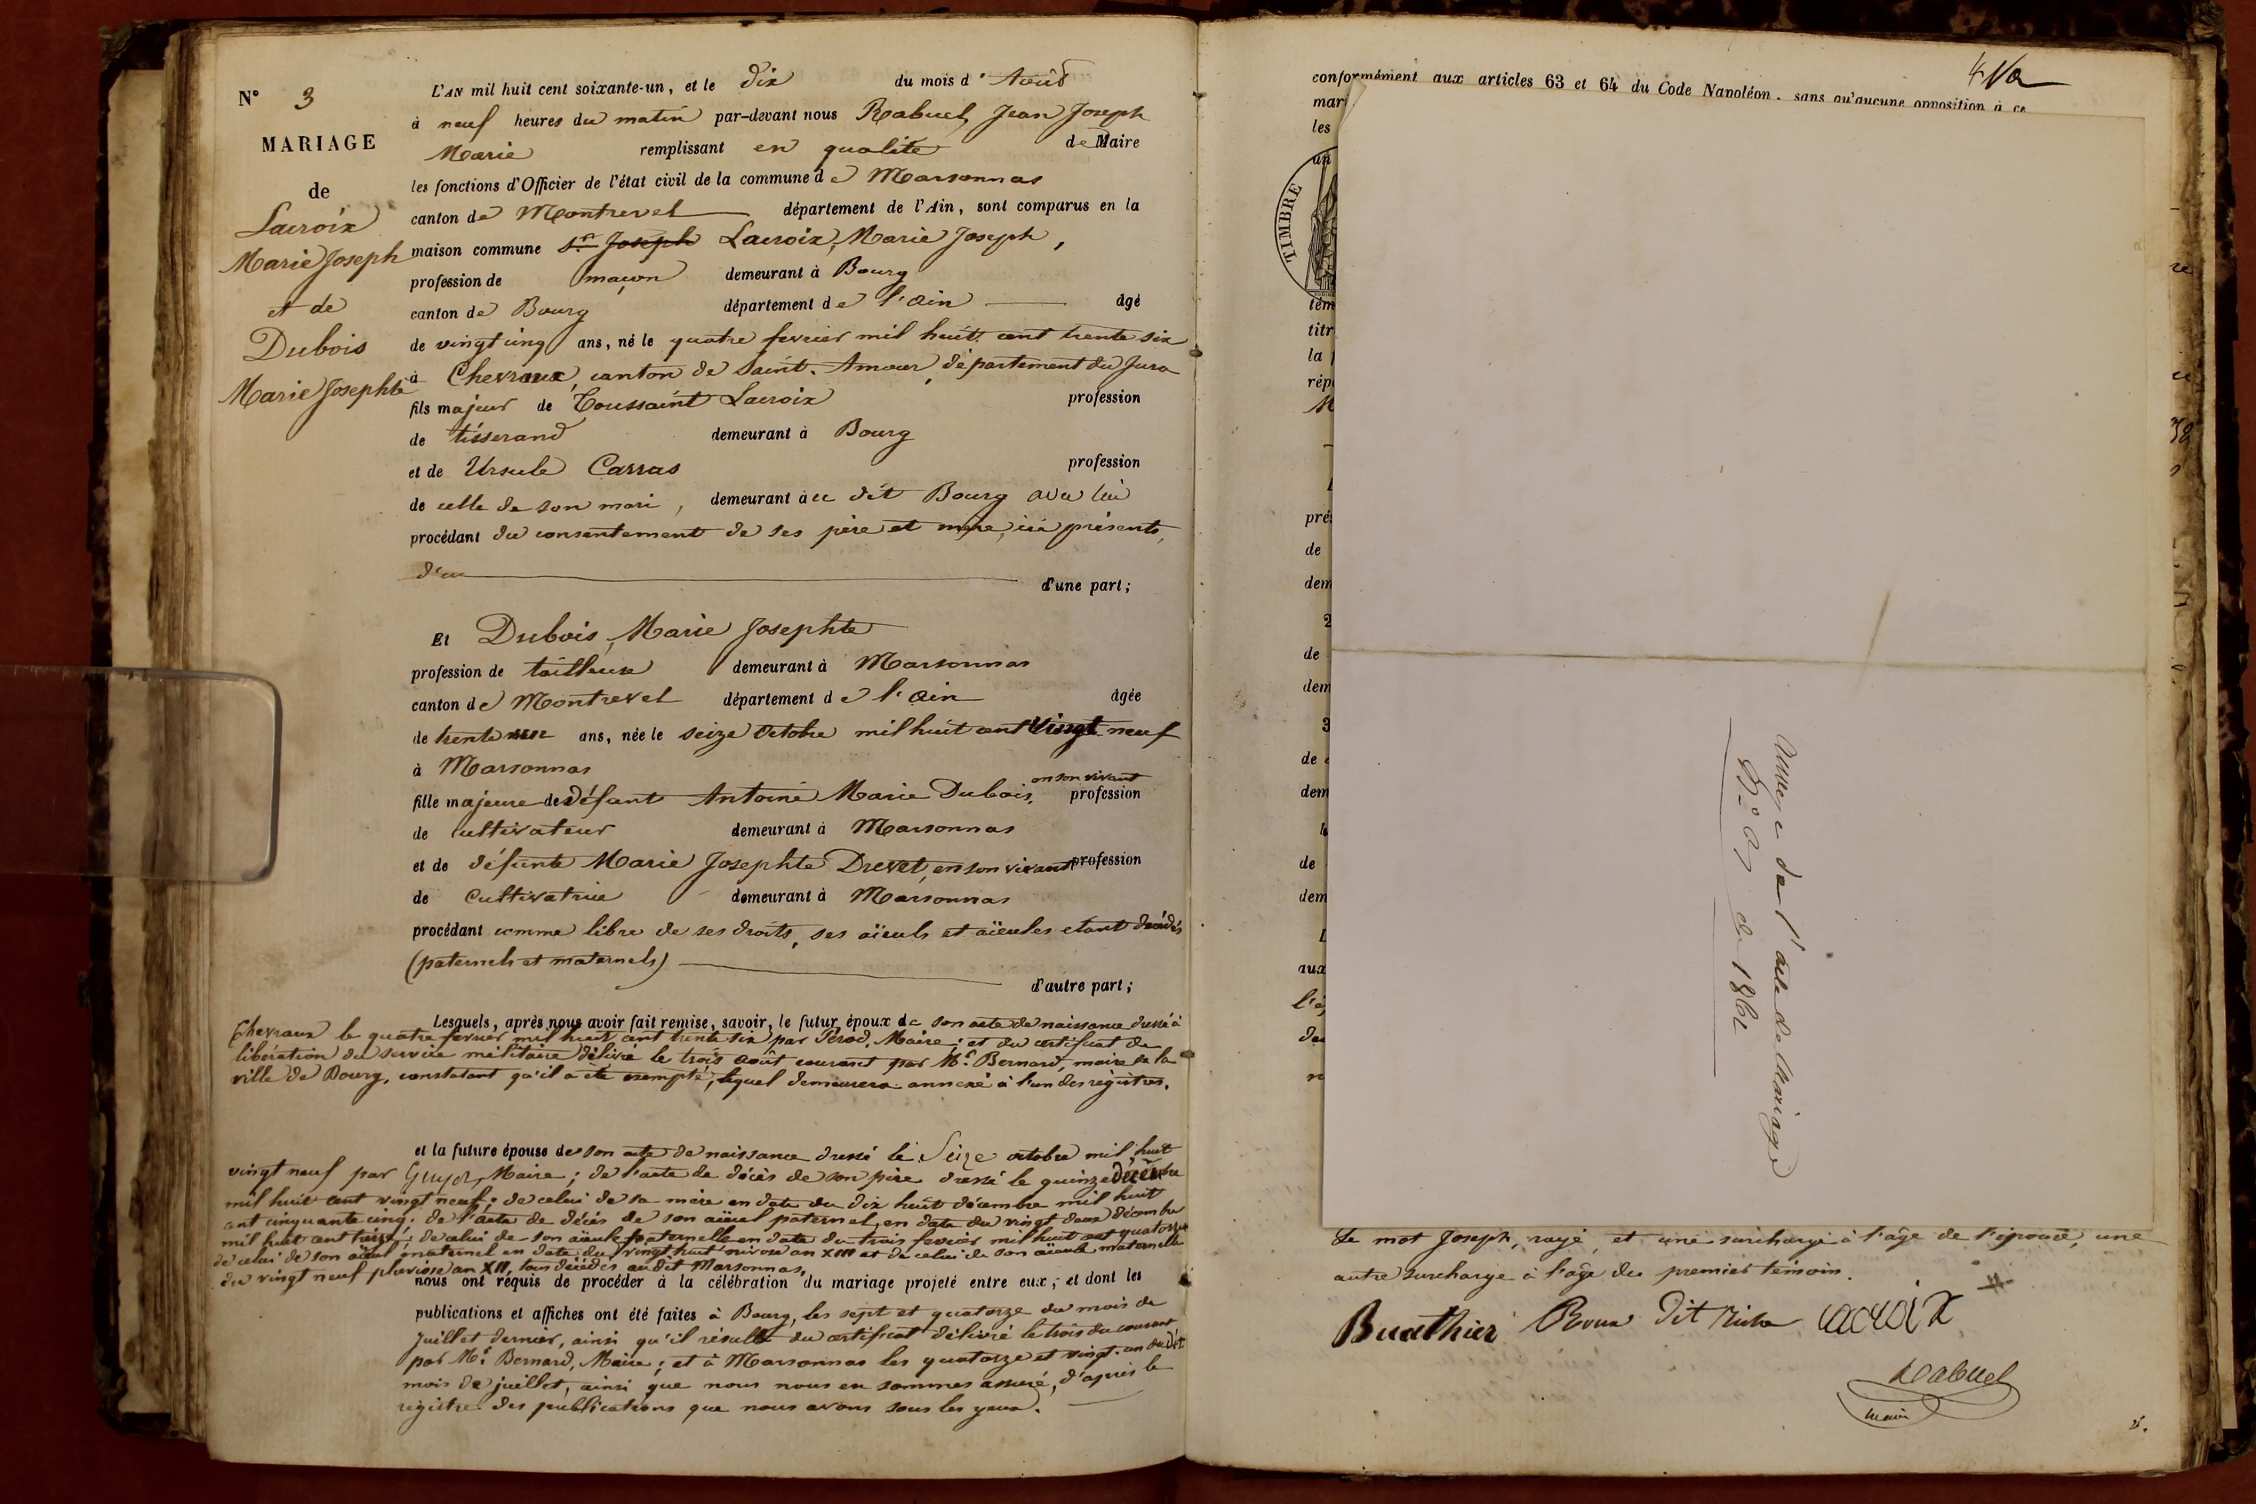 N° 3
MARIAGE
de
Lacroix
Marie Joseph
et de
Dubois
Marie Josephte
L'AN mil huit cent soixante-un, et le dix du mois d'Août
à neuf heures du matin par-devant nous Rabuel, Jean Joseph
Marie remplissant en qualité de Maire
les fonctions d'Officier de l'état civil de la commune de Marsonnas
canton de Montrevel département de l'Ain, sont comparus en la
maison commune Sr Joseph Lacroix, Marie Joseph,
profession de maçon demeurant à Bourg
canton de Bourg département de l'Ain âgé
de vingt cinq ans, né le quatre fevrier mil huit cent trente six
à Chevraux, canton de Saint-Amour, département du Jura
fils majeur de Toussaint Lacroix profession
de tisserand demeurant à Bourg
et de Ursule Carras profession
de celle de son mari, demeurant à ce dit Bourg avec lui
procédant du consentement de ses père et mère, ici présents,
d'une part;
Et Dubois, Marie Josephte
profession de tailleuse demeurant à Marsonnas
canton de Montrevel département de l'Ain âgée
de trente un ans, née le seize Octobre mil huit cent vingt neuf
à Marsonnas
fille majeure de défunt Antoine Marie Dubois, en son vivant profession
de cultivateur demeurant à Marsonnas
et de défunte Marie Josephte Drevet, en son vivant profession
de cultivatrice demeurant à Marsonnas
procédant comme libre de ses droits, ses aïeuls et aïeules etant décédés
(paternels et maternels)
d'autre part;
Lesquels, après nous avoir fait remise, savoir, le futur époux de son acte de naissance dressé à
Chevraux le quatre fevrier mil huit cent trente six par Perod, Maire; et du certificat de
libération du service militaire délivré le trois août courant par Mr. Bernard, maire de la
ville de Bourg, constatant qu'il a été exempté, lequel demeurera annexé à l'un des registres.
et la future épouse de son acte de naissance dressé le Seize octobre mil huit
vingt neuf par Guyot, Maire; de l'acte de décès de son père dressé le quinze décembre
mil huit cent vingt neuf; de celui de sa mère en date du dix huit décembre mil huit
cent cinquante cinq; de l'acte de décès de son aïeul paternel, en date du vingt deux décembre
mil huit cent treize; de celui de son aïeule paternelle en date du trois fevrier mil huit cent quatorze
de celui de son aïeul maternel en date du vingt huit nivose an XIII et de celui de son aïeule maternelle
du vingt neuf pluviose an XII, tous décédés audit Marsonnas,
nous ont requis de procéder à la célébration du mariage projeté entre eux, et dont les
publications et affiches ont été faites à Bourg, les sept et quatorze du mois de
Juillet dernier, ainsi qu'il résulte du certificat délivré le trois du courant
par Mr. Bernard, Maire; et à Marsonnas les quatorze et vingt-un dudit
mois de juillet, ainsi que nous nous en sommes assuré, d'après le
registre des publications que nous avons sous les yeux.
conformément aux articles 63 et 64 du Code Napoléon, sans qu'aucune opposition à ce
mar
les
un
TIMBRE
tém
titr
la
rép
M
pré
de
dem
2
de
dem
3
de
dem
de
dem
aux
de 1861
Le mot Joseph, rayé, et une surcharge à l'âge de l'épouse, une
autre surcharge à l'âge du premier témoin.
Buathier Roux dit Riche lacroix
Rabuel
maire